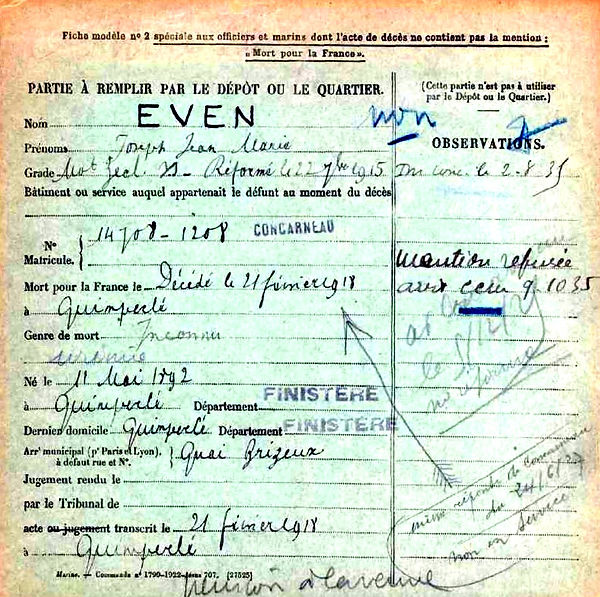 Fiche modèle nº 2 spéciale aux officiers et marins dont l'acte de décès ne contient pas la mention :
„ Mort pour la France ».
PARTIE À REMPLIR PAR LE DÉPÔT OU LE QUARTIER.
Nom EVEN
Prénoms Joseph Jean Marie
Grade Mat Réformé le 22 7bre 1915
Bâtiment ou service auquel appartenait le défunt au moment du décès
Nº Matricule. 14708-1208 CONCARNEAU
Mort pour la France le Décédé le 21 février 1918
à Quimperlé
Genre de mort Inconnu
Né le 11 Mai 1892
à Quimperlé Département FINISTÈRE
Dernier domicile Quimperlé Département FINISTÈRE
Arrt municipal (pr Paris et Lyon), à défaut rue et Nº. Quai Brizeux
Jugement rendu le
par le Tribunal de
acte ou jugement transcrit le 21 février 1918
à Quimperlé
Marine. — Commande nº 1799-1922-Série 707. [27525]
(Cette partie n'est pas à utiliser
par le Dépôt ou le Quartier.)
non
OBSERVATIONS.
le 2-8-35
Mention refusée
9.10.35
même réponse de
du 24/6/27
non en service